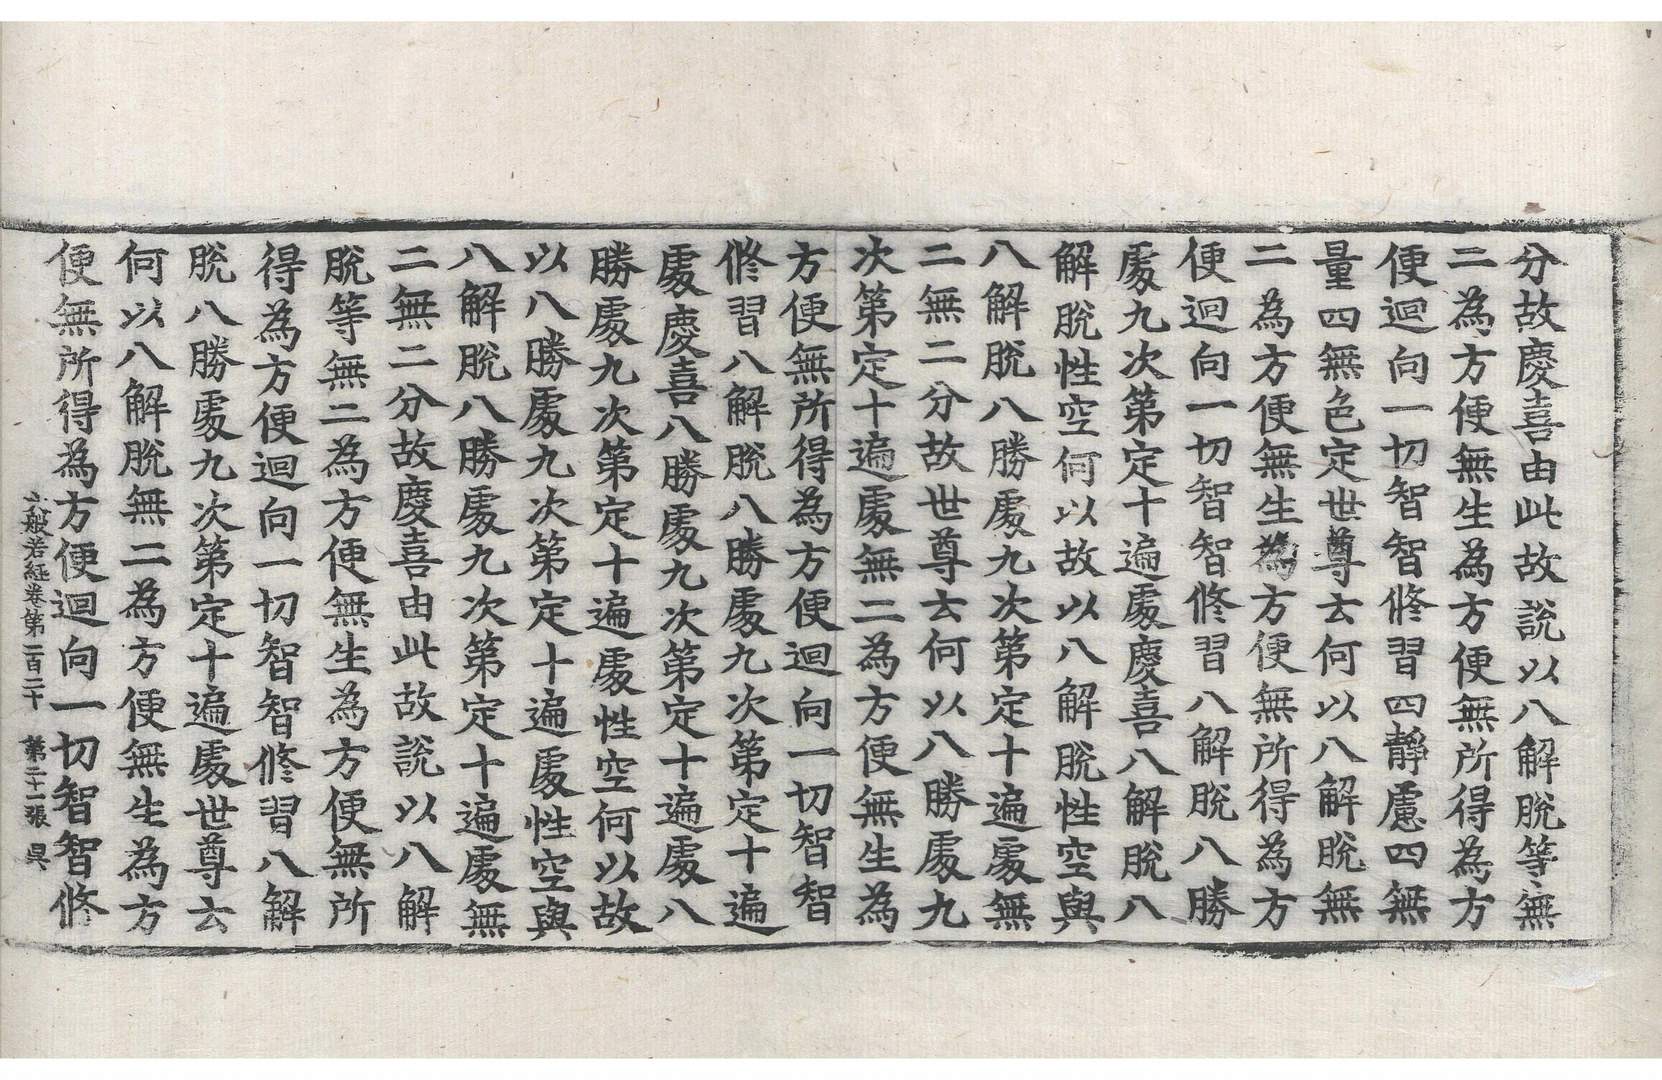 分故慶喜由此故說以八解脫等無
二為方便無生為方便無所得為方
便迴向一切智智修習四靜慮四無
量四無色定世尊云何以八解脫無
二為方便無生為方便無所得為方
便迴向一切智智修習八解脫八勝
處九次第定十遍處慶喜八解脫八
解脫性空何以故以八解脫性空與
八解脫八勝處九次第定十遍處無
二無二分故世尊云何以八勝處九
次第定十遍處無二為方便無生為
方便無所得為方便迴向一切智智
修習八解脫八勝處九次第定十遍
處慶喜八勝處九次第定十遍處八
勝處九次第定十遍處性空何以故
以八勝處九次第定十遍處性空與
八解脫八勝處九次第定十遍處無
二無二分故慶喜由此故說以八解
脫等無二為方便無生為方便無所
得為方便迴向一切智智修習八解
脫八勝處九次第定十遍處世尊云
何以八解脫無二為方便無生為方
便無所得為方便迴向一切智智修
大般若經卷第一百二十 第二十一張 具